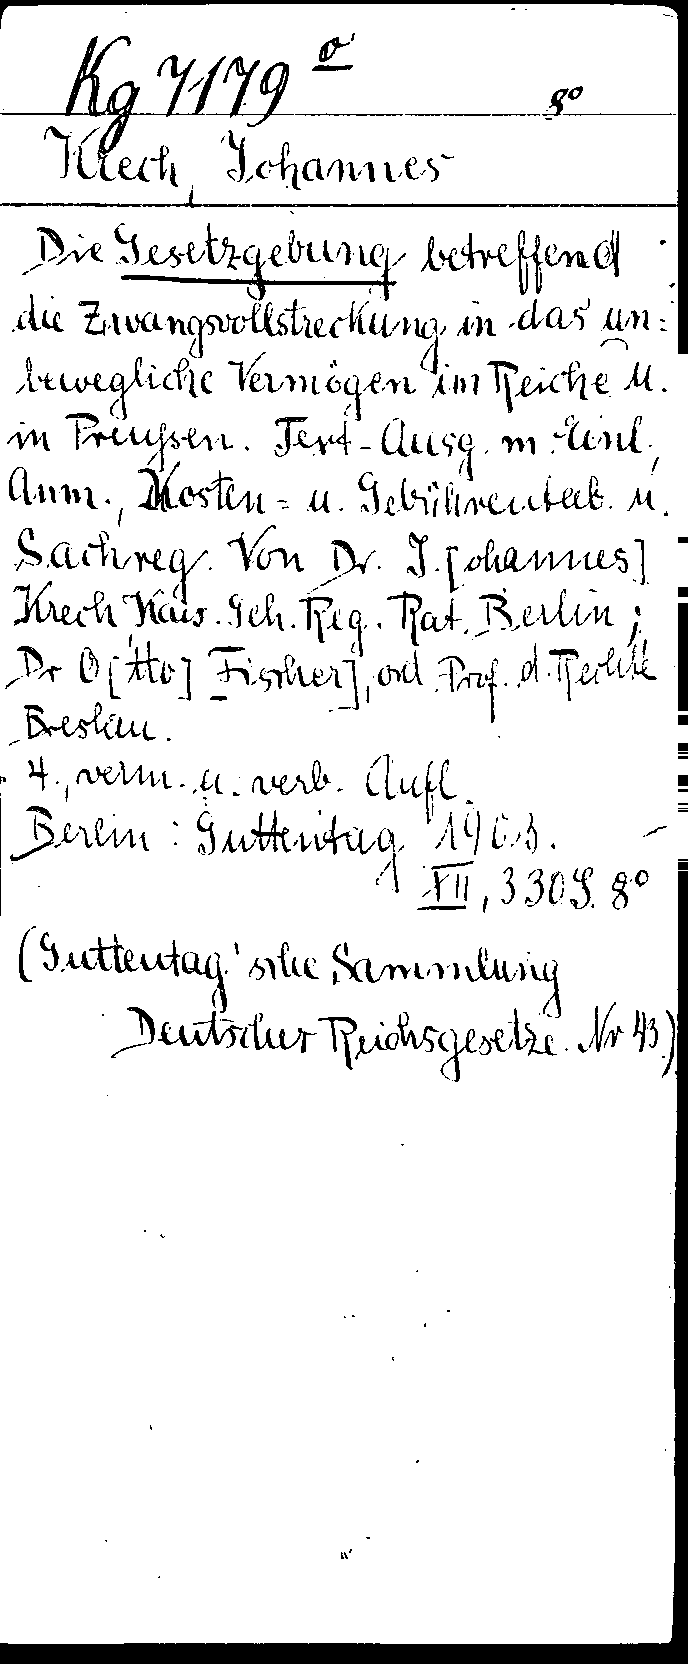 Kg 7179 o 8°
Krech, Johannes
Die Gesetzgebung betreffend
die Zwangsvollstreckung in das un=
bewegliche Vermögen im Reiche u.
in Preußen. Text-Ausg. m. Einl.,
Anm., Kosten= u. Gebührentab. u.
Sachreg. Von Dr. J.[ohannes]
Krech, Kais. Geh. Reg. Rat, Berlin;
Dr O[tto] Fischer], ord. Prof. d. Rechte
Breslau.
4., verm. u. verb. Aufl.
Berlin: Guttentag
XII, 330 S. 8°
(Guttentag'sche Sammlung
Deutscher Reichsgesetze. Nr 43)